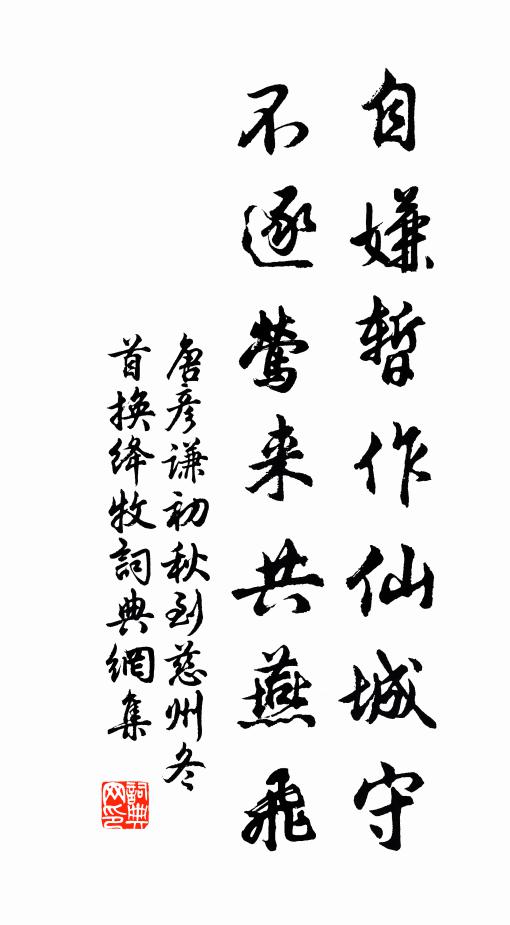 自嫌暫作仙城守
不逐鶯来共燕飛
唐彦謙初秋到慈州冬
首換絳牧詞典網集
詞典
网印